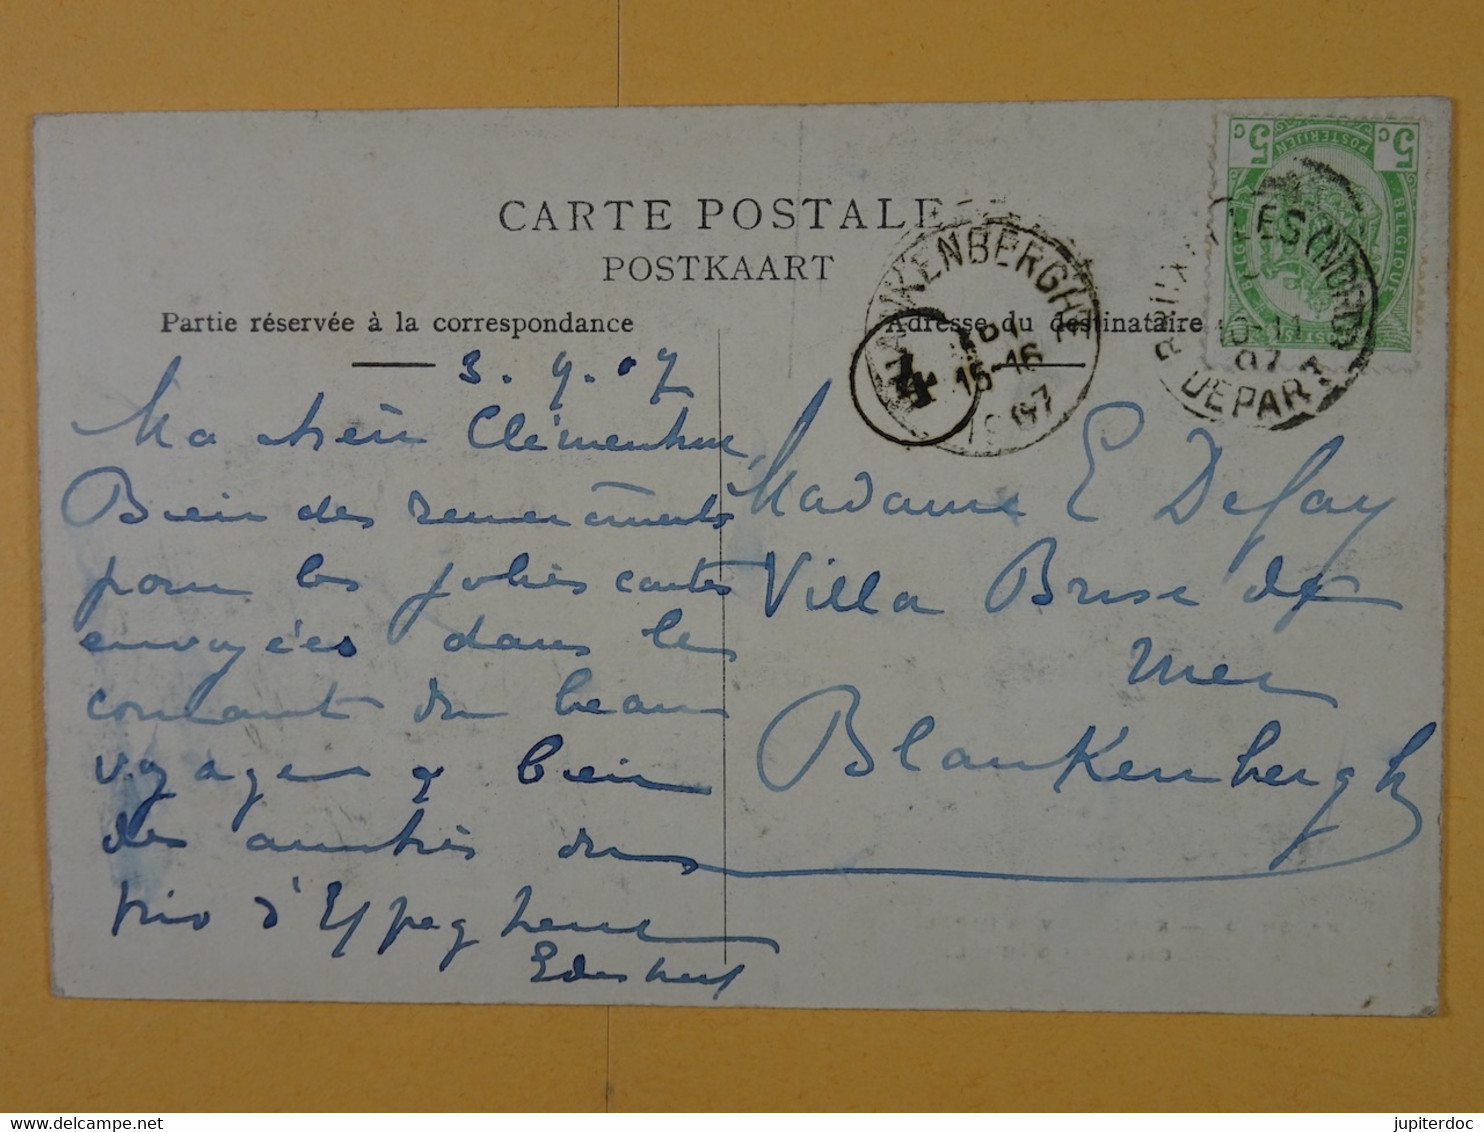 CARTE POSTALE
POSTKAART
Partie réservée à la correspondance
Adresse du destinataire
3.9.07
Ma chère Clémentine,
Bien des remerciments
pour les jolies cartes
envoyées dans le
courant du beau
voyage & bien
des amitiés du
trio d'Eppeghem
Madame E Defay
Villa Brise de
mer
Blankenberghe
BLANKENBERGHE
15-16
1907
4
5 c
5 c
POSTERIJEN
BELGIQUE
(NORD)
10-11
07
DEPART
jupiterdoc